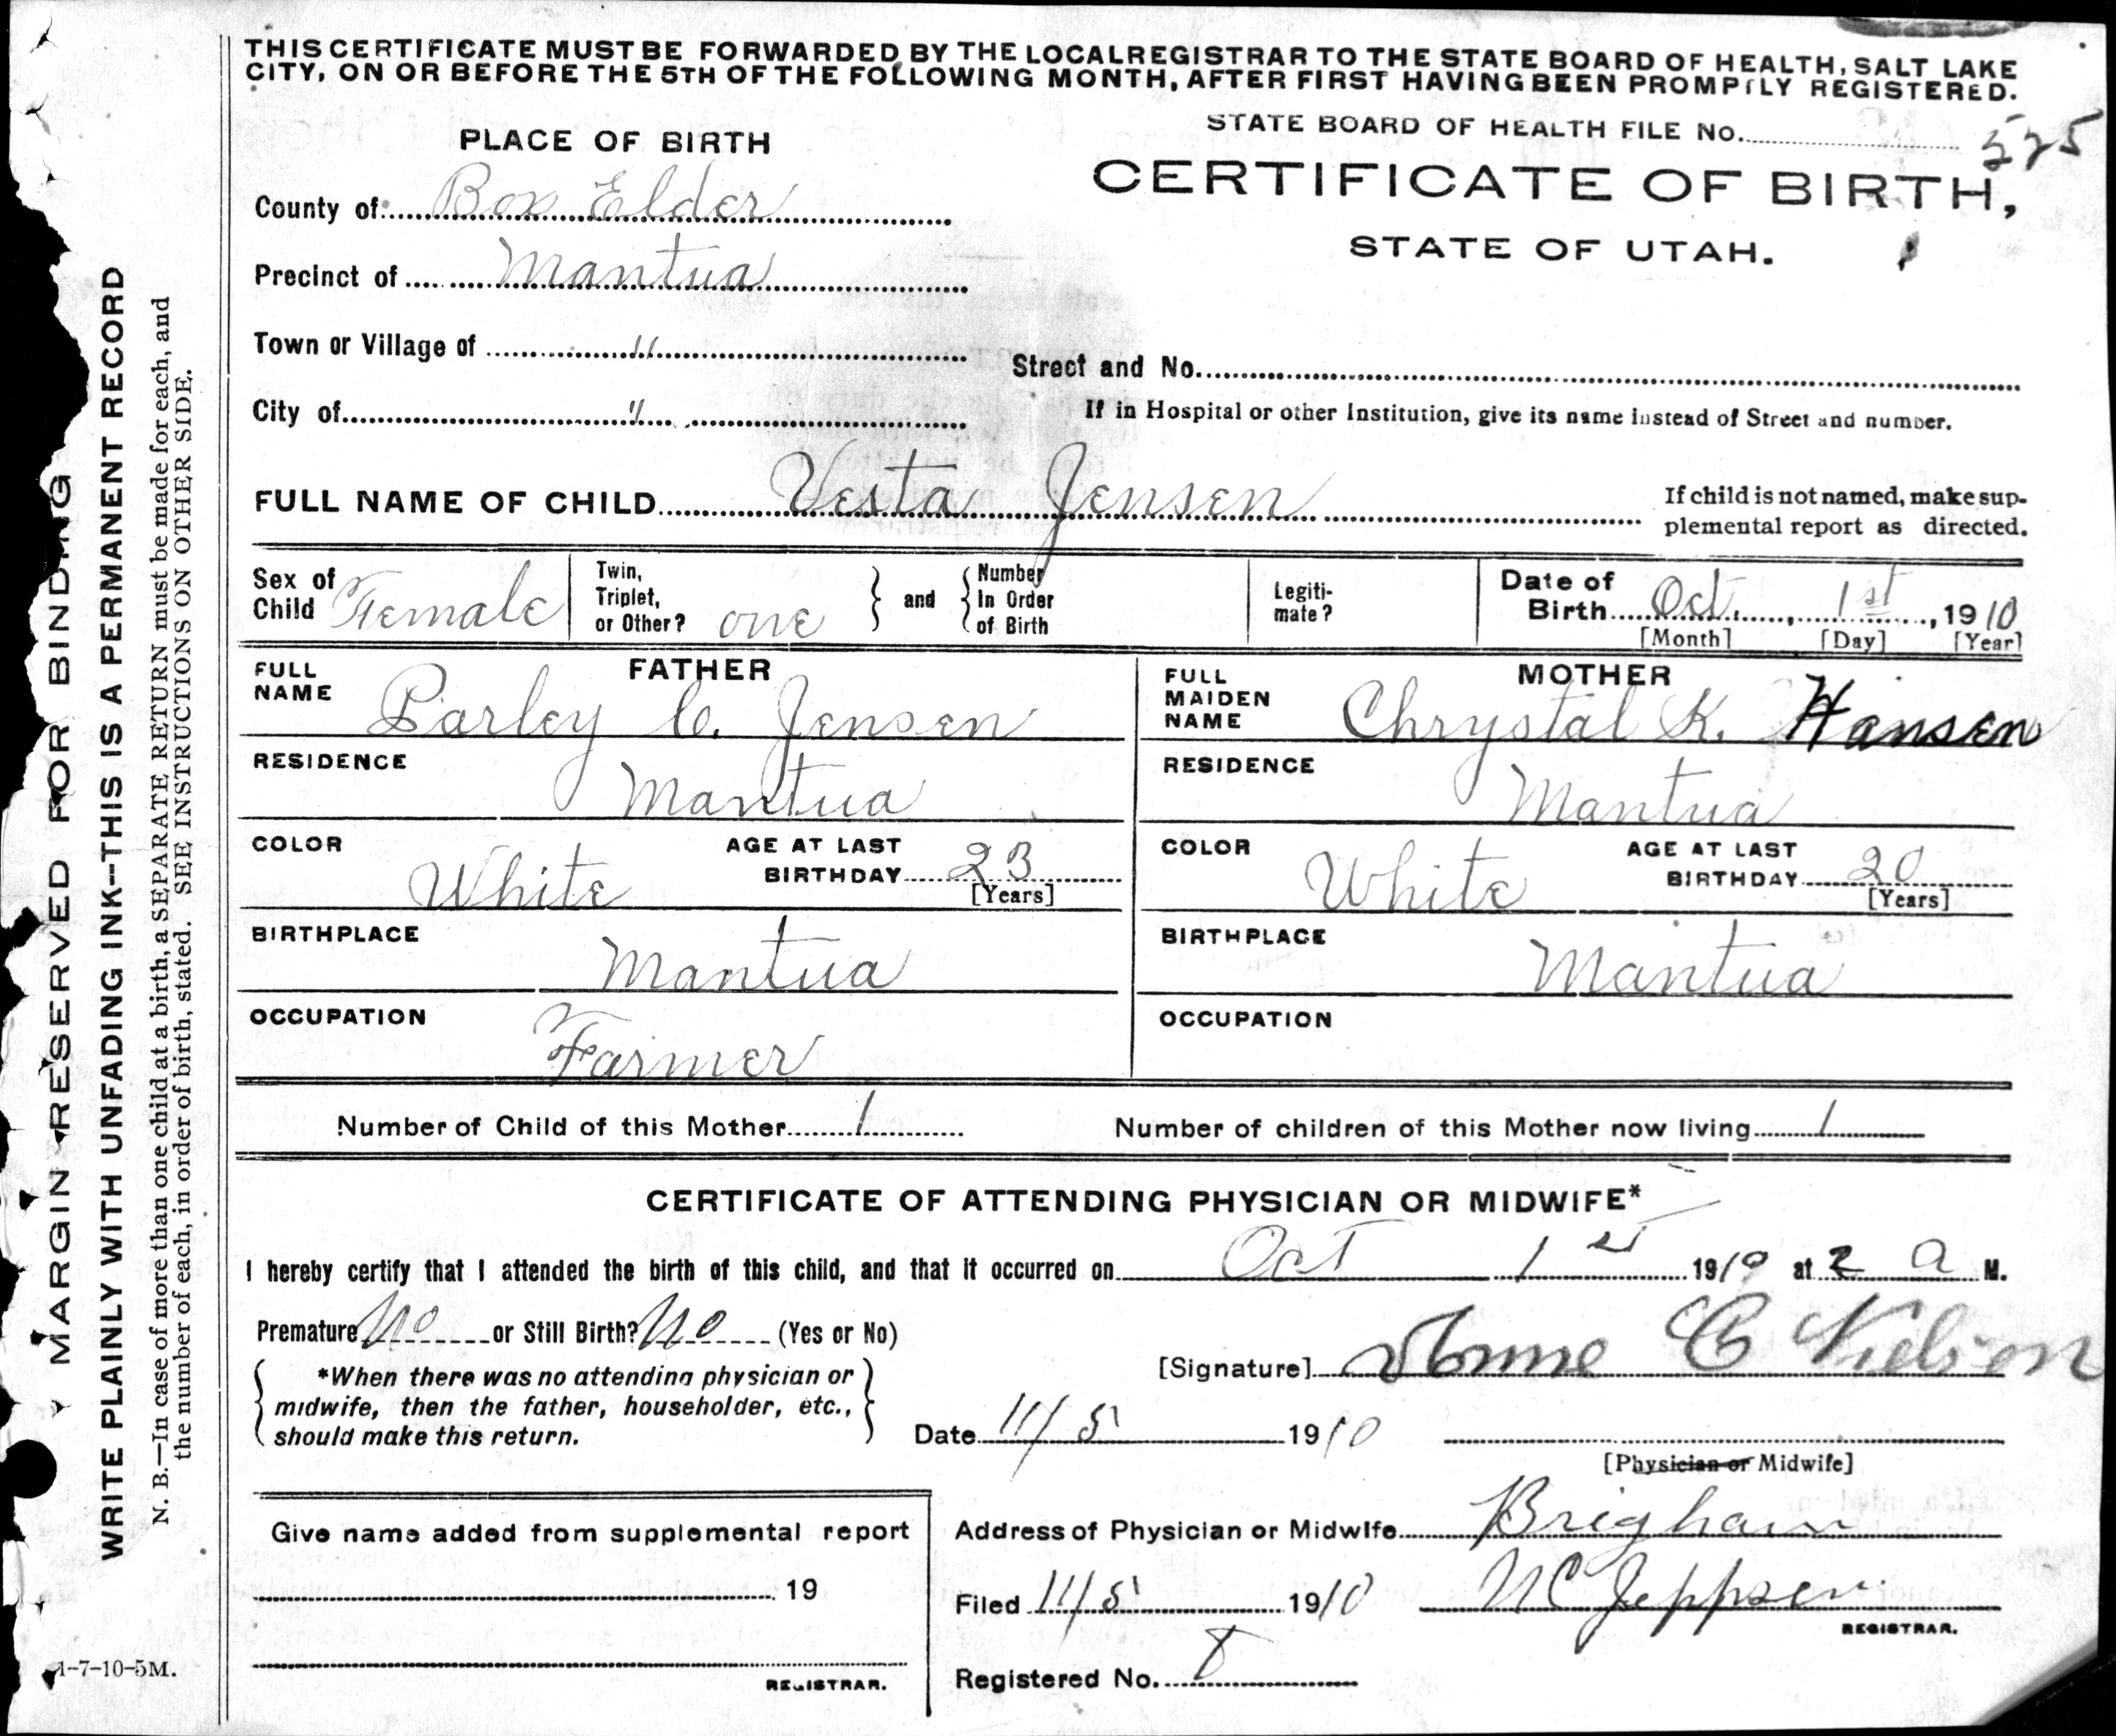 THIS CERTIFICATE MUST BE FORWARDED BY THE LOCAL REGISTRAR TO THE STATE BOARD OF HEALTH, SALT LAKE
CITY, ON OR BEFORE THE 5TH OF THE FOLLOWING MONTH, AFTER FIRST HAVING BEEN PROMPTLY REGISTERED.
STATE BOARD OF HEALTH FILE NO. 525
PLACE OF BIRTH
CERTIFICATE OF BIRTH,
STATE OF UTAH.
County of Box Elder
Precinct of Mantua
Town or Village of "
Street and No.
City of "
If in Hospital or other Institution, give its name instead of Street and number.
FULL NAME OF CHILD Vesta Jensen
If child is not named, make sup-
plemental report as directed.
Sex of Child Female
Twin, Triplet, or Other? one
and
Number In Order of Birth
Legiti-
mate?
Date of Birth Oct. 1st, 1910
[Month] [Day] [Year]
FATHER
FULL NAME Parley C. Jensen
RESIDENCE
Mantua
COLOR White
AGE AT LAST BIRTHDAY 23
[Years]
BIRTHPLACE
Mantua
OCCUPATION
Farmer
MOTHER
FULL MAIDEN NAME Chrystal K. Hansen
RESIDENCE
Mantua
COLOR White
AGE AT LAST BIRTHDAY 20
[Years]
BIRTHPLACE
Mantua
OCCUPATION
Number of Child of this Mother 1 Number of children of this Mother now living 1
CERTIFICATE OF ATTENDING PHYSICIAN OR MIDWIFE*
I hereby certify that I attended the birth of this child, and that it occurred on Oct 1st 1910 at 2 a M.
Premature No or Still Birth? No (Yes or No)
*When there was no attending physician or
midwife, then the father, householder, etc.,
should make this return.
[Signature] Anne C Nielsen
Date 11/5 1910
[Physician or Midwife]
Give name added from supplemental report
19
REGISTRAR.
Address of Physician or Midwife Brigham
Filed 11/5 1910 N C Jeppsen
REGISTRAR.
Registered No. 8
MARGIN RESERVED FOR BINDING
WRITE PLAINLY WITH UNFADING INK—THIS IS A PERMANENT RECORD
N. B.—In case of more than one child at a birth, a SEPARATE RETURN must be made for each, and
the number of each, in order of birth, stated. SEE INSTRUCTIONS ON OTHER SIDE.
1-7-10-5M.